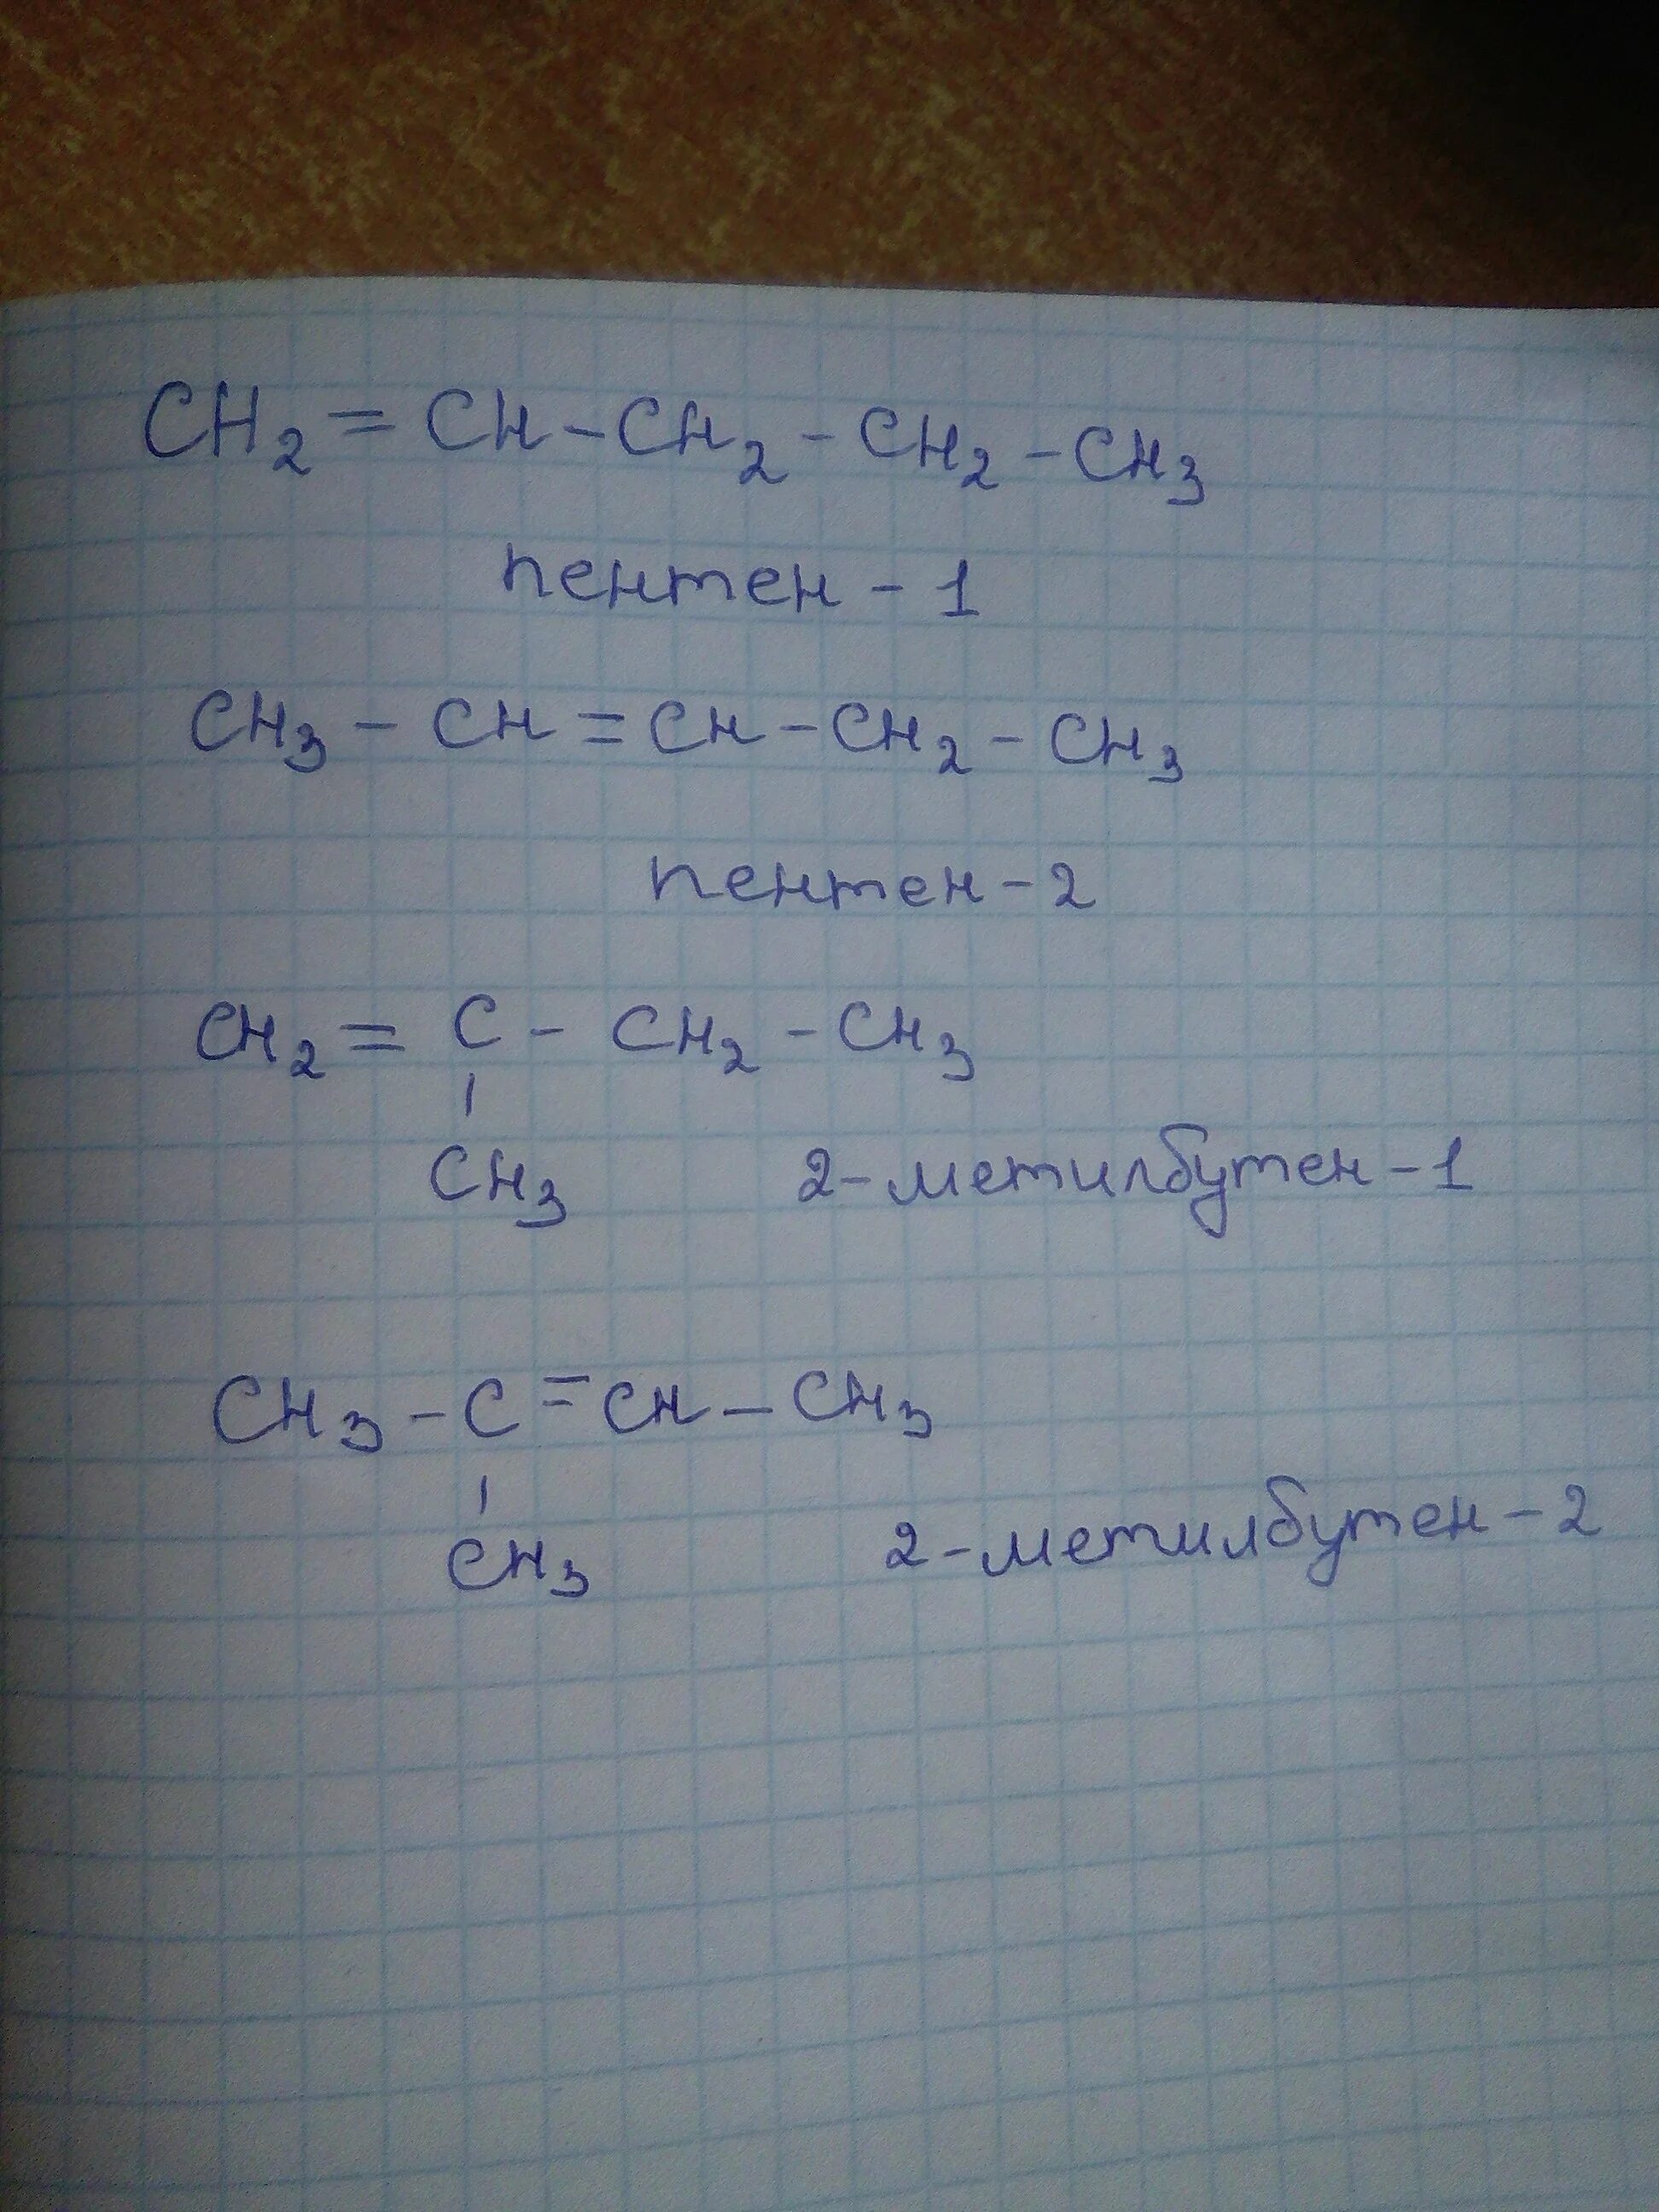 CH₂ = CH – CH₂ – CH₂ – CH₃
пентен – 1
CH₃ – CH = CH – CH₂ – CH₃
пентен – 2
CH₂ = C – CH₂ – CH₃
|
CH₃ 2-метилбутен – 1
CH₃ – C = CH – CH₃
|
CH₃ 2-метилбутен – 2